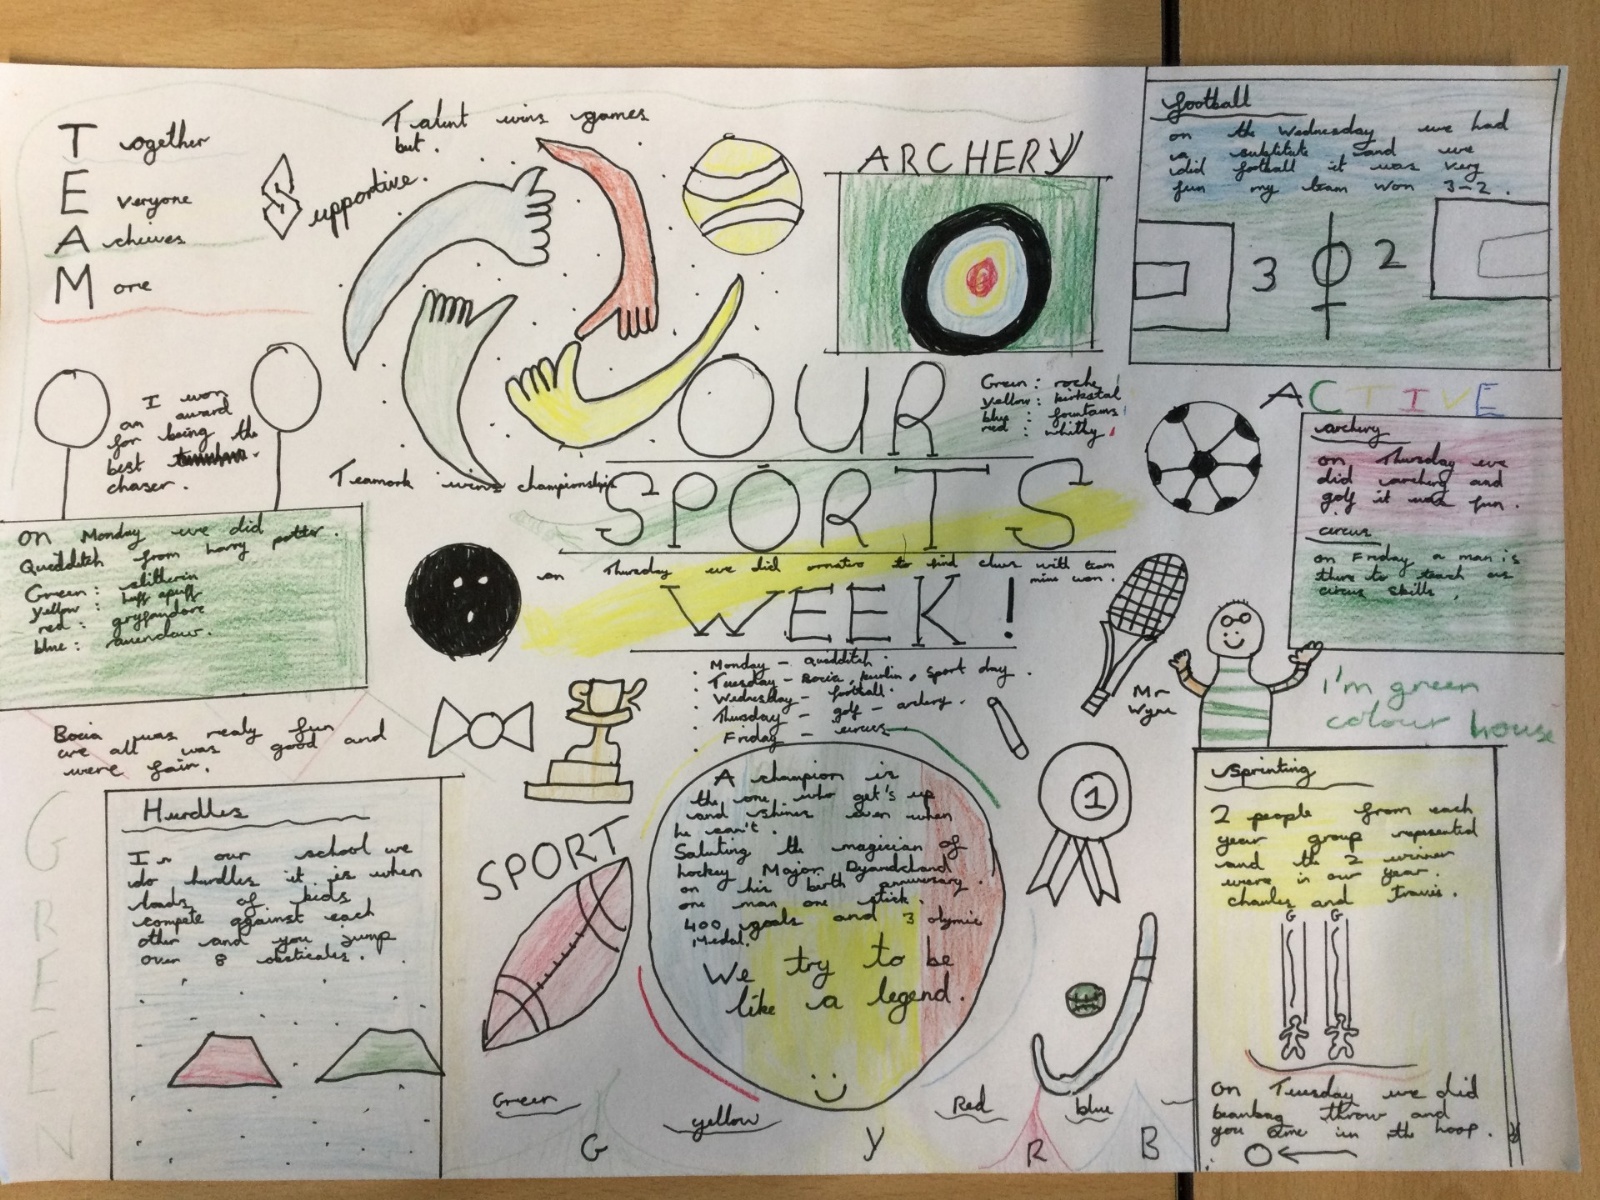 Together
Everyone
Achieves
More
Supportive.
Talent wins games
but.
Teamork wins championships
ARCHERY
football
on the Wednesday we had
a substitute and we
did football it was very
fun my team won 3-2.
3 2
I won
an award
for being the
best
chaser.
OUR
SPORTS
WEEK!
Green: roche
yellow: kirkstal
blue: fountains
red: whitby
ACTIVE
archery
on Thursday we
did archery and
golf it was fun.
circus
on Friday a man is
there to teach us
circus skills,
on Monday we did
Quedditch from harry potter.
Green: slitherin
yellow: huff epuff
red: gryfandore
blue:
on Thursday we did to find clues with team
mine won.
Monday - quedditch.
Tuesday - Bocia, , Sport day.
Wednesday - football.
Thursday - golf - archery.
Friday - circus
Mr
Wyne
I'm green
colour house
Bocia was realy fun
we all was good and
were fair.
GREEN
Hurdles
In our school we
do hurdles it is when
loads of kids
compete against each
other and you jump
over 8 obsticales.
SPORT
A champion is
the one who get's up
and shines even when
he can't.
Saluting the magician of
hockey Major Dyandchand
on his birth anniversary.
one man one stick.
400 goals and 3 olymic
Medal.
We try to be
like a legend.
1
Sprinting
2 people from each
year group represented
and the 2 winner
were in our year.
charles and travis.
G G
on Tuesday we did
beanbag throw and
you aime in the hoop.
Green
yellow
Red
blue
G
y
R
B